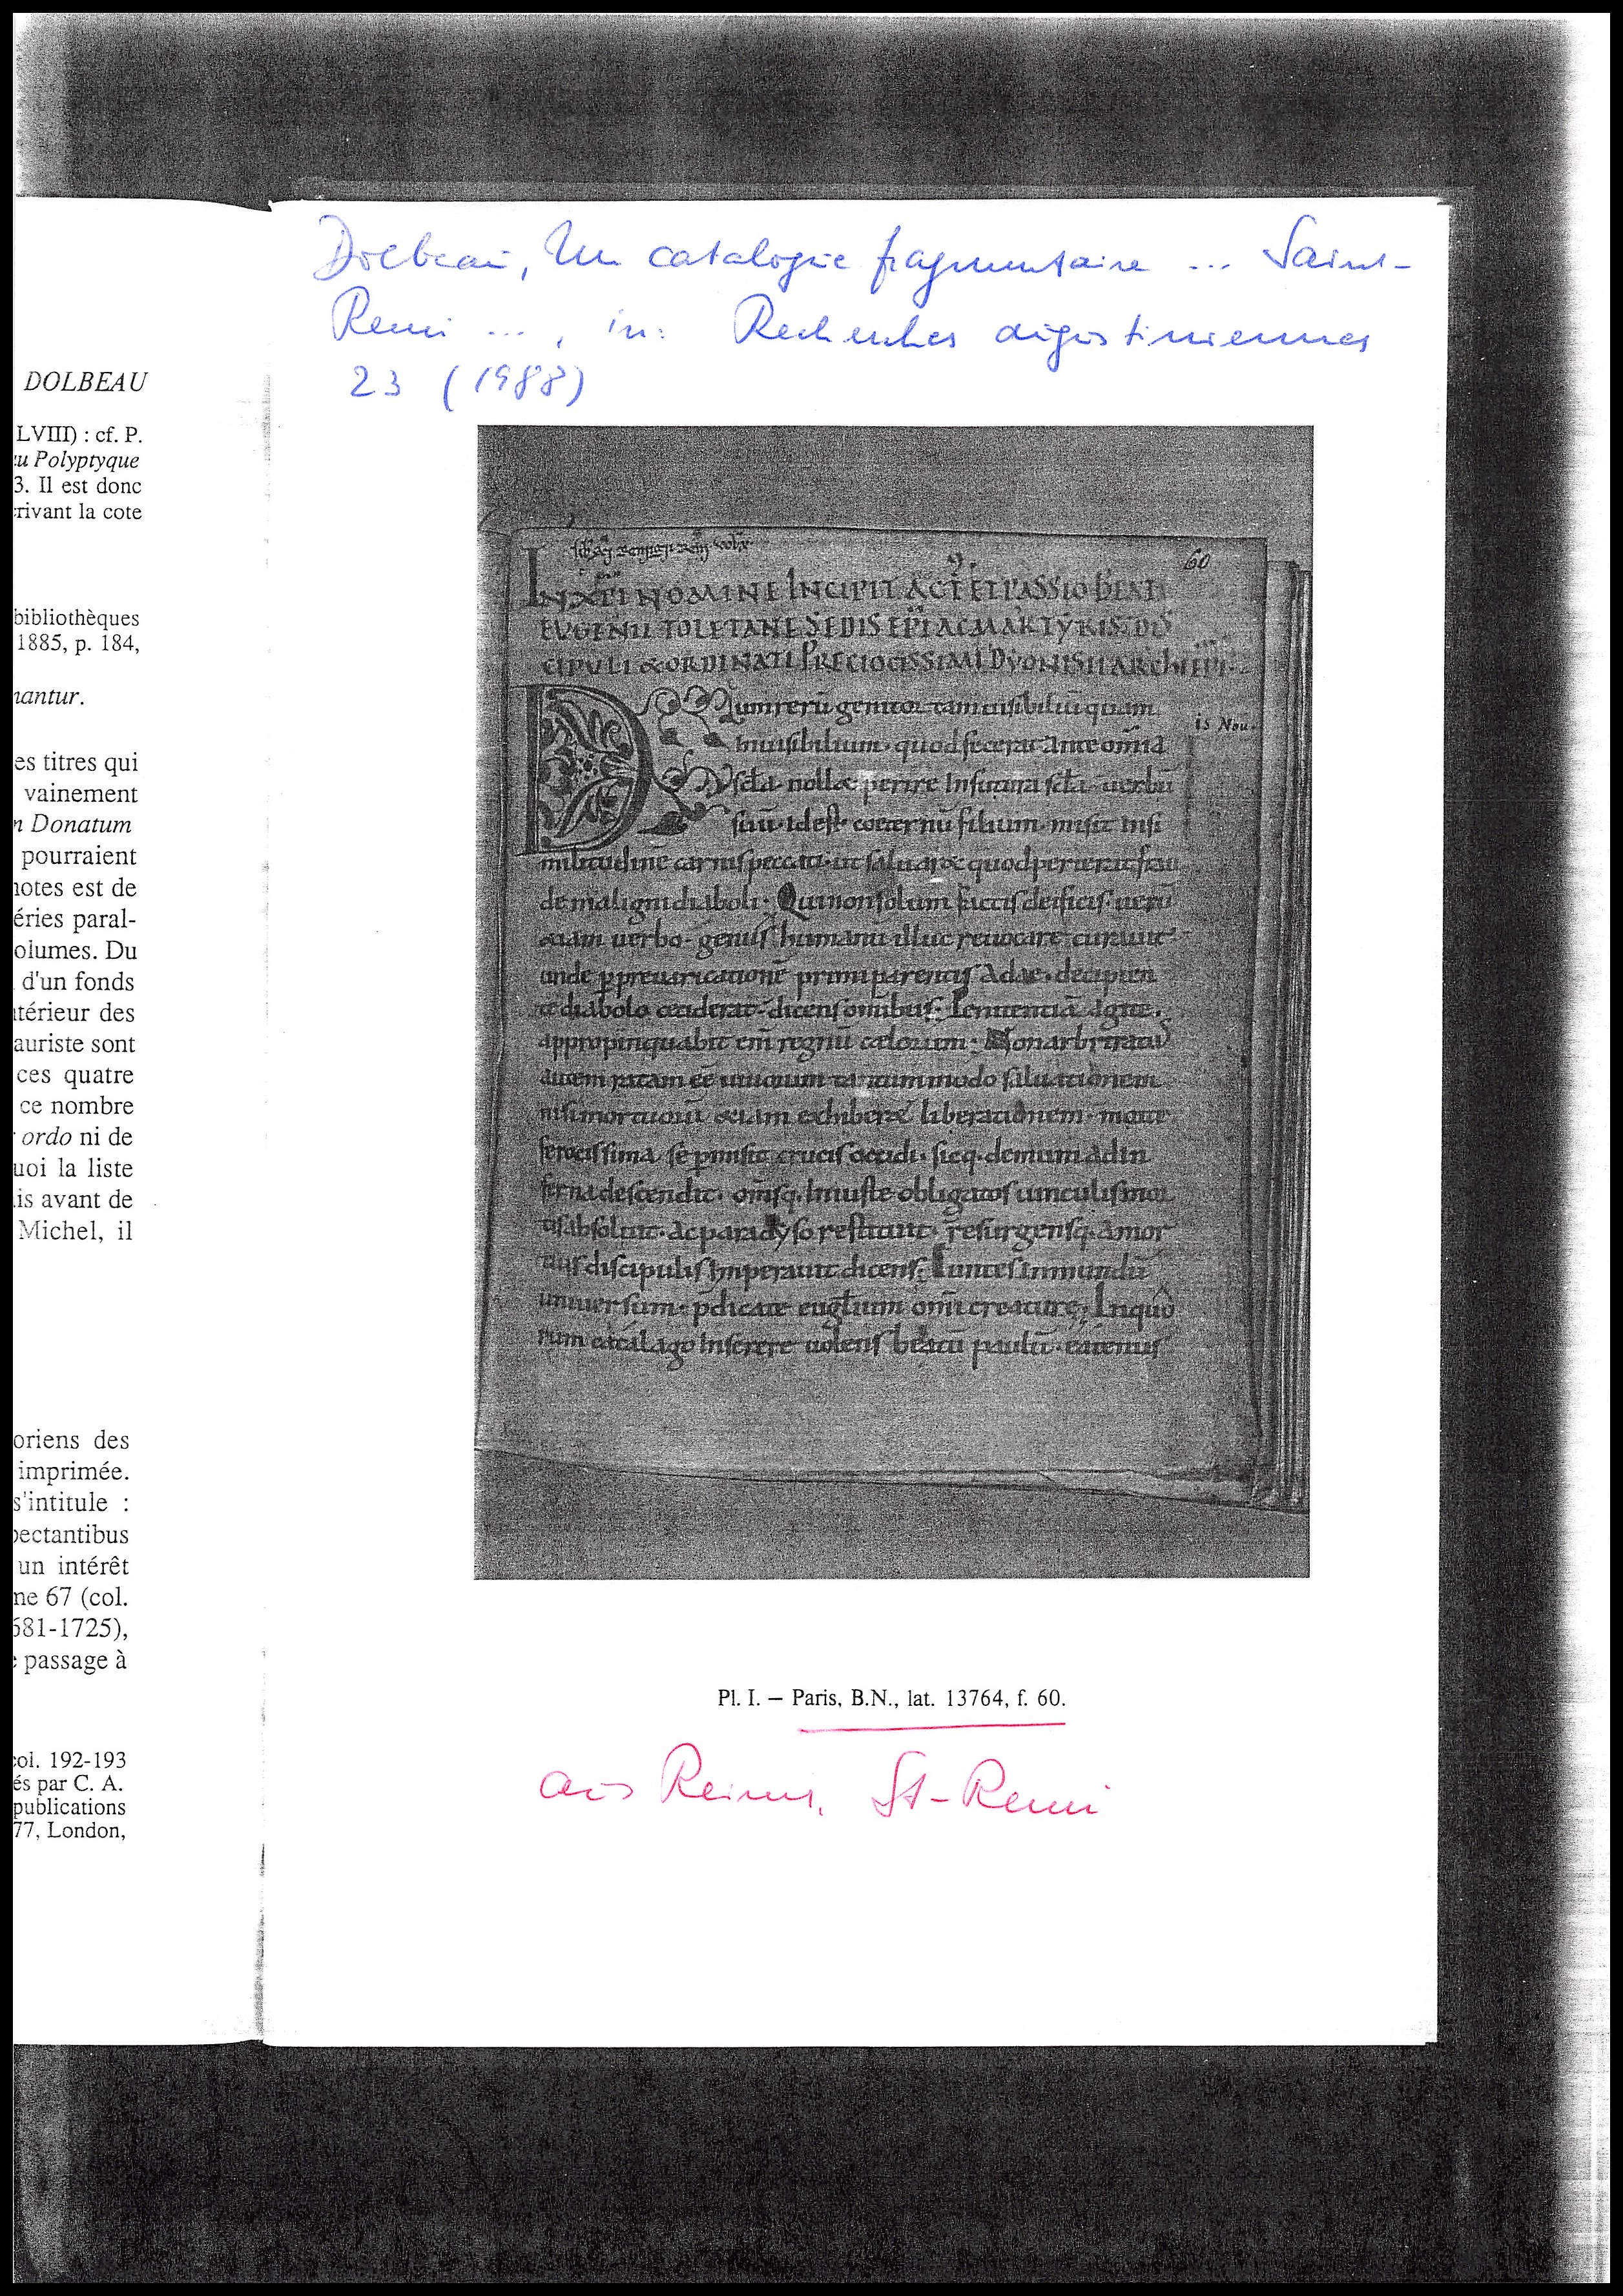 DOLBEAU
LVIII) : cf. P.
u Polyptyque
3. Il est donc
rivant la cote
bibliothèques
1885, p. 184,
nantur.
es titres qui
vainement
n Donatum
pourraient
notes est de
éries paral-
olumes. Du
d'un fonds
térieur des
auriste sont
ces quatre
ce nombre
ordo ni de
uoi la liste
is avant de
Michel, il
oriens des
imprimée.
s'intitule :
pectantibus
un intérêt
ne 67 (col.
681-1725),
passage à
col. 192-193
és par C. A.
publications
77, London,
Dolbeau, Un catalogue fragmentaire ... Saint-
Remi ..., in: Recherches augustiniennes
23 (1988)
60
IN XPI NOMINE INCIPIT ACT ET PASSIO BEATI
EVGENII TOLETANE SEDIS EPI AC MARTYRIS. DIS
CIPVLI & ORDINATI PRECIOCISSIMI DYONISII ARCHIEPI
Dum rerū genitor tam uisibiliū quam
is Nou.
inuisibilium. quod fecerat ante omīa
scła. nollet perire. Infinita scła. uerbū
suū. id est coeternū filium. misit in si
militudinē carnis peccati. ut saluaret quod perierat frau
de maligni diaboli. Qui non solum factis deificis. uerū
etiam uerbo. genus humanū illuc reuocare curauit.
unde p preuaricationē primi parentis Adae. decipien
te diabolo ceciderat. dicens omībus. Penitentiā agite.
appropinquabit em̄ regnū celorum. Non arbitratus
autem ratam eē uiuorum tantummodo saluationem
nisi mortuorū etiam exhiberet liberationem. morte
ferocissima se pmisit crucis occidi. sicq. demum ad in
ferna descendit. omīsq. iniuste obligatos uinculis mor
tis absoluit. ac paradyso restituit. resurgensq. a mor
tuis discipulis imperauit dicens. Euntes in mundū
uniuersum. pdicate eugłium omī creature. In quo
rum catalago inserere uolens beatū paulū. eatenus
Pl. I. — Paris, B.N., lat. 13764, f. 60.
aus Reims, St-Remi